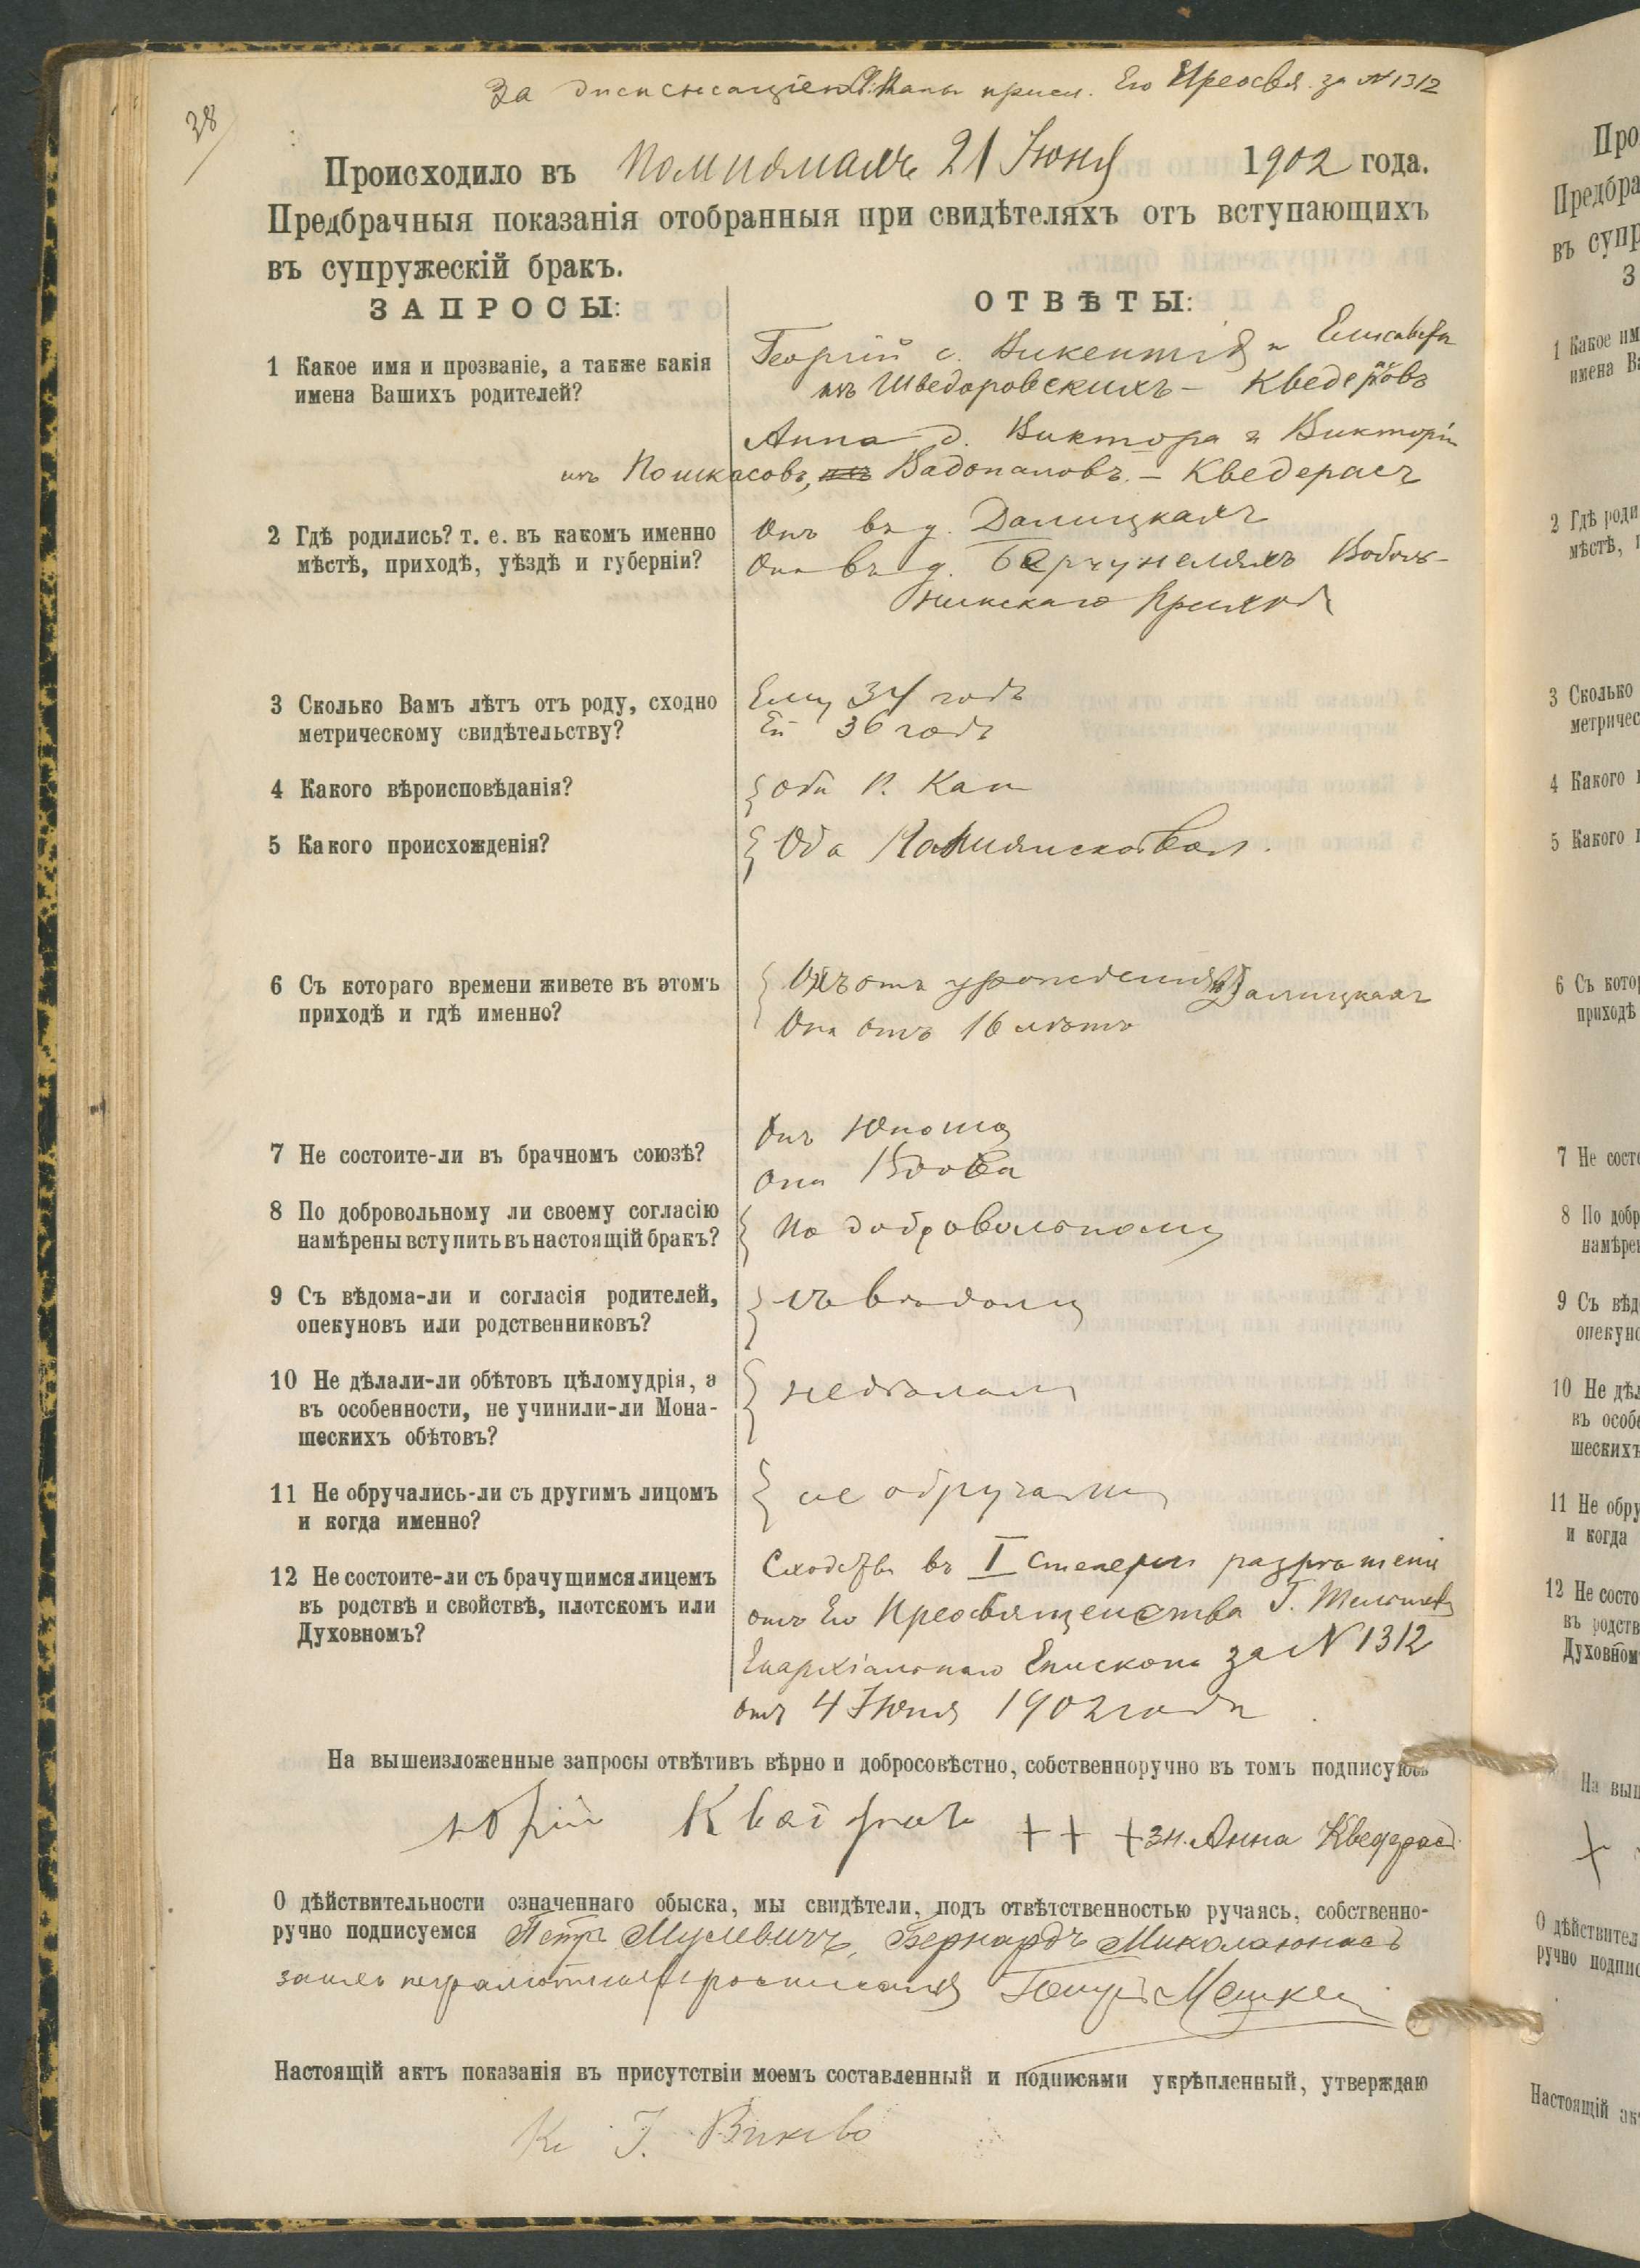 38
За диспенсаціею П. Папы присл. Его Преосвя. за № 1312
Происходило въ 21 Іюня 1902 года.
Предбрачныя показанія отобранныя при свидѣтеляхъ отъ вступающихъ
въ супружескій бракъ.
ЗАПРОСЫ:
ОТВѢТЫ:
1 Какое имя и прозваніе, а также какія
имена Вашихъ родителей?
Георгій с. Викентія и Елисаветы
изъ Шведоровскихъ – Кведеровъ
Анна д. Виктора и Викторіи
изъ Пошкасовъ, Вадопаловъ. – Кведерасъ
2 Гдѣ родились? т. е. въ какомъ именно
мѣстѣ, приходѣ, уѣздѣ и губерніи?
Онъ въ д.
Она въ д. Воболь-
никскаго прихода
3 Сколько Вамъ лѣтъ отъ роду, сходно
метрическому свидѣтельству?
Ему 34 годъ
Ей 36 годъ
4 Какого вѣроисповѣданія?
оба Р. Кат
5 Какого происхожденія?
Оба
6 Съ котораго времени живете въ этомъ
приходѣ и гдѣ именно?
Онъ отъ урожденія
Она отъ 16 лѣтъ
7 Не состоите-ли въ брачномъ союзѣ?
Онъ Юноша
она Вдова
8 По добровольному ли своему согласію
намѣрены вступить въ настоящій бракъ?
По добровольному
9 Съ вѣдома-ли и согласія родителей,
опекуновъ или родственниковъ?
съ вѣдому
10 Не дѣлали-ли обѣтовъ цѣломудрія, а
въ особенности, не учинили-ли Мона-
шескихъ обѣтовъ?
не дѣлали
11 Не обручались-ли съ другимъ лицомъ
и когда именно?
не обручались
12 Не состоите-ли съ брачущимся лицемъ
въ родствѣ и свойствѣ, плотскомъ или
Духовномъ?
въ I степени разрѣшеніе
отъ Его Преосвященства Г. Тельшевс
Епархіальнаго Епископа за № 1312
отъ 4 Іюня 1902 года
На вышеизложенные запросы отвѣтивъ вѣрно и добросовѣстно, собственноручно въ томъ подписуюсь
Юрій + + + зн. Анна Кведерасъ.
О дѣйствительности означеннаго обыска, мы свидѣтели, подъ отвѣтственностью ручаясь, собственно-
ручно подписуемся Петръ Мулевичъ, Бернардъ Миколаюнасъ
неграмотныхъ росписался
Настоящій актъ показанія въ присутствіи моемъ составленный и подписями укрѣпленный, утверждаю
Кс І.